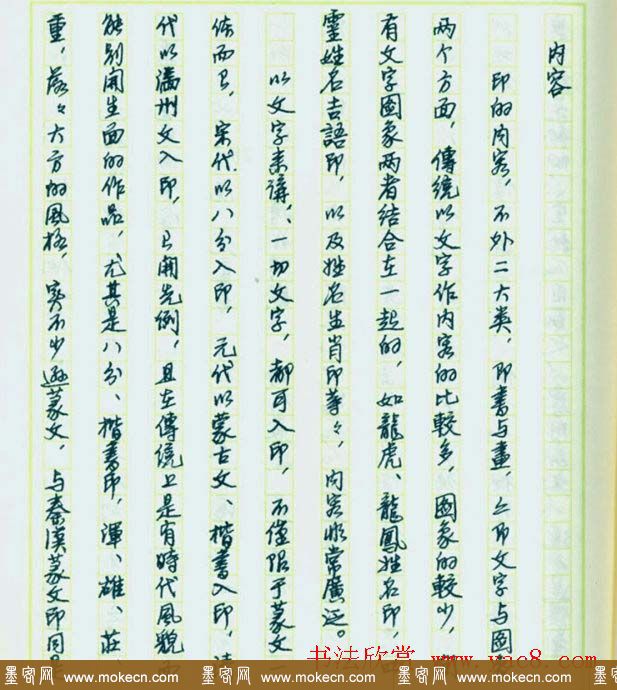 内容
印的内容，不外二大类，即書与畫，亦即文字与圖
两个方面，傳统以文字作内容的比較多，圖象的較少，
有文字圖象两者结合在一起的，如龍虎、龍鳳姓名印，
靈姓名吉語印，以及姓名生肖印等々，内容非常廣泛。
以文字来講，一切文字，都可入印，不僅限于篆文一
体而已，宋代以八分入印，元代以蒙古文、楷書入印，清
代以满州文入印，已開先例，且在傳统上是有時代風貌而
能别開生面的作品，尤其是八分、楷書印，渾、雄、莊、
重，落々大方的風格，实不少逊篆文，与秦漢篆文印同
书法欣赏 www.yac8.com
墨客网 www.mokecn.com 墨客网 www.mokecn.com 墨客网 www.mokecn.com